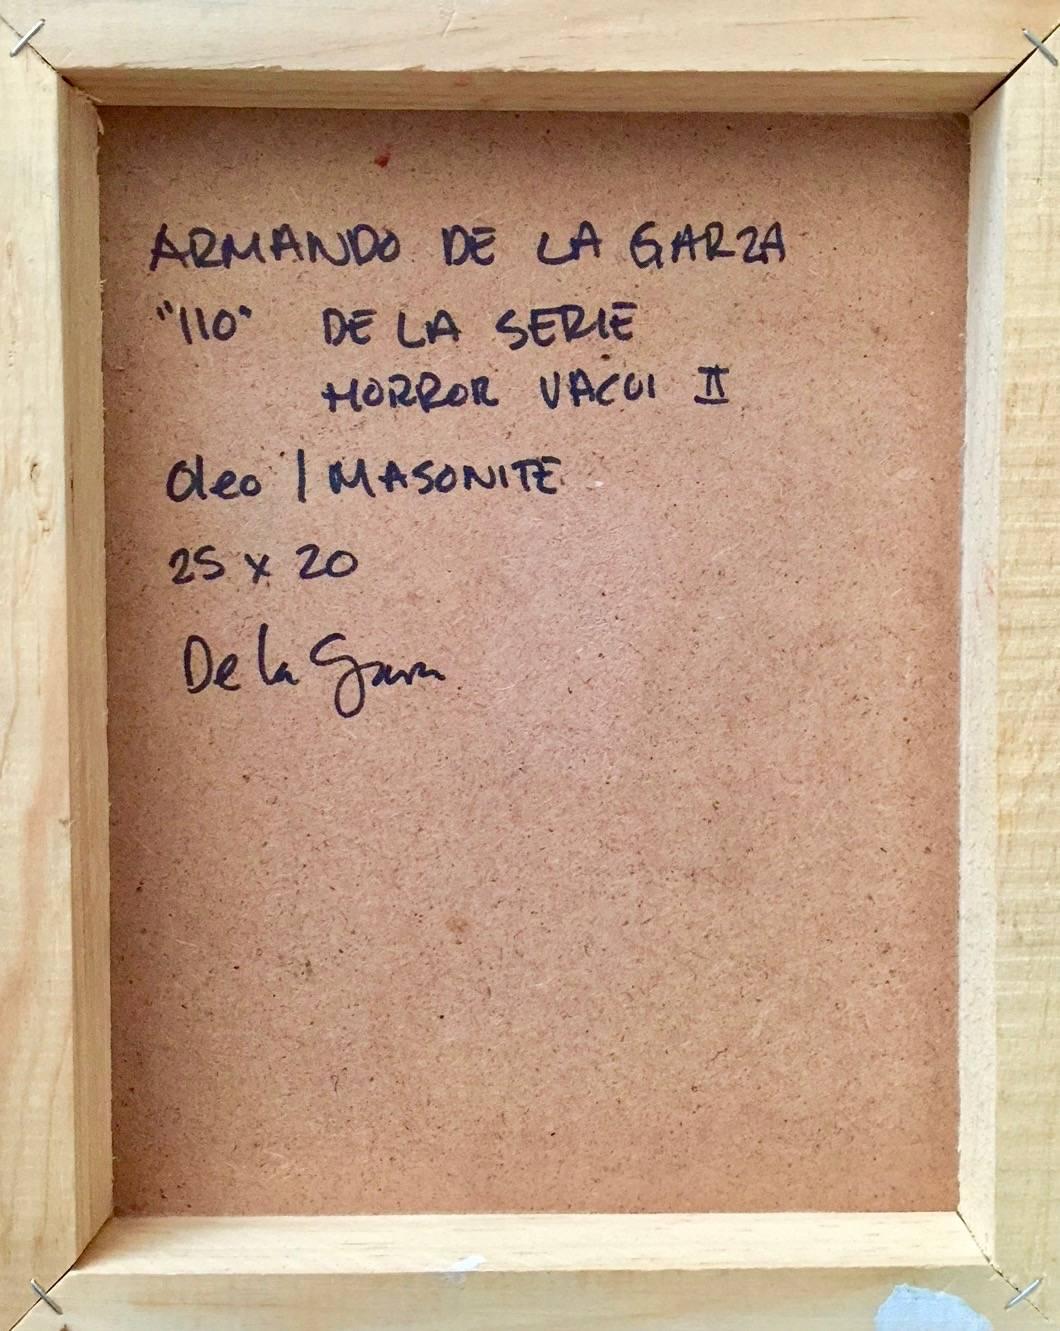 ARMANDO DE LA GARZA
"110" DE LA SERIE
HORROR VACUI II
Oleo / MASONITE
25 x 20
De la Garza